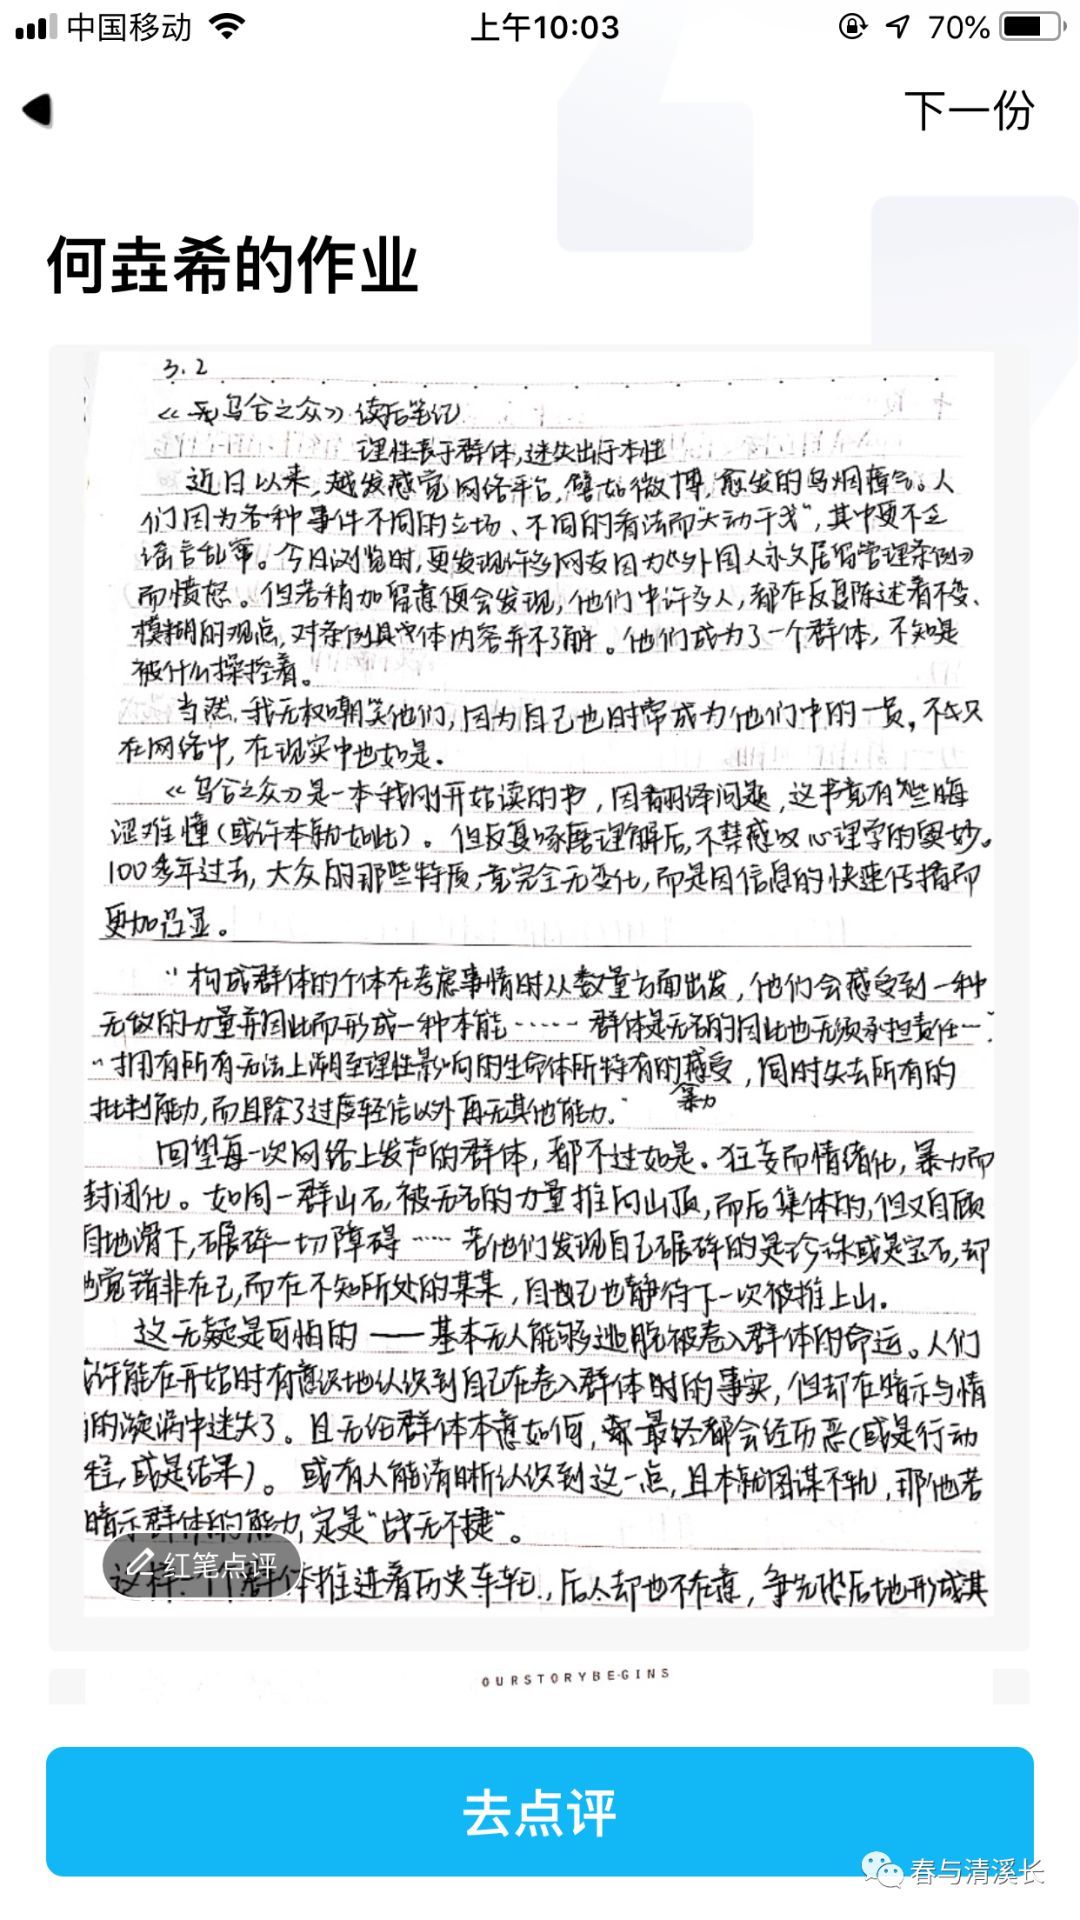 中国移动
上午10:03
70%
下一份
何垚希的作业
3.2
《乌合之众》读后笔记
理性丧于群体,迷失出于本性
近日以来,越发感觉网络平台,譬如微博,愈发的乌烟瘴气。人
们因为各种事件不同的立场、不同的看法而"大动干戈",其中更不乏
谣言乱窜。今日浏览时,更发现许多网友因为《外国人永久居留管理条例》
而愤怒。但若稍加留意便会发现,他们中许多人,都在反复陈述着不变、
模糊的观点,对条例具体内容并不了解。他们成为了一个群体,不知是
被什么操控着。
当然,我无权嘲笑他们,因为自己也时常成为他们中的一员,不只
在网络中,在现实中也如是。
《乌合之众》是一本我刚开始读的书,因翻译问题,这书竟有些晦
涩难懂(或许本就如此)。但反复琢磨理解后,不禁感叹心理学的奥妙。
100多年过去,大众的那些特质,竟完全无变化,而是因信息的快速传播而
更加凸显。
"构成群体的个体在考虑事情时从数量方面出发,他们会感受到一种
无敌的力量并因此而形成一种本能……群体是无名的因此也无须承担责任…"
"拥有所有无法上溯至理性影响的生命体所特有的暴力感受,同时失去所有的
批判能力,而且除了过度轻信以外再无其他能力."
回望每一次网络上发声的群体,都不过如是。狂妄而情绪化,暴力而
封闭化。如同一群山石,被无名的力量推向山顶,而后集体的,但又自顾
自地滑下,碾碎一切障碍……若他们发现自己碾碎的是珍珠或是宝石,却
也觉错非在己,而在不知所处的某某,自己也静待下一次被推上山.
这无疑是可怕的——基本无人能够逃脱被卷入群体的命运。人们
许能在开始时有意识地认识到自己在卷入群体时的事实,但却在暗示与情
的漩涡中迷失了。且无论群体本意如何,最终都会经历恶(或是行动
程,或是结果)。或有人能清晰认识到这一点,且本就图谋不轨,那他若
暗示群体的能力,定是"战无不捷"。
这样,一个群体推进着历史车轮,后人却也不在意,争先恐后地形成其
红笔点评
OURSTORYBEGINS
去点评
春与清溪长